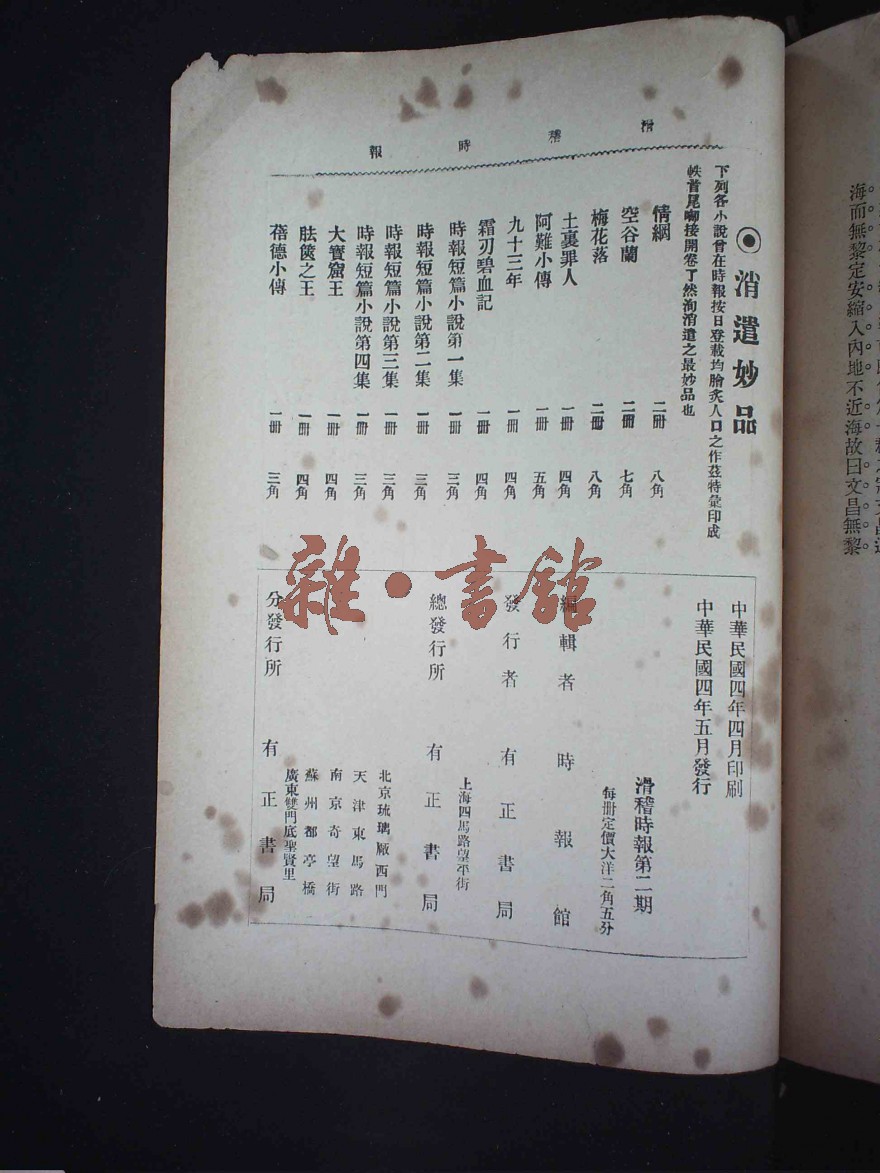 滑稽時報
◉消遣妙品
下列各小說曾在時報按日登載均膾炙人口之作茲特彙印成
帙首尾啣接開卷了然洵消遣之最妙品也
情網 二冊 八角
空谷蘭 二冊 七角
梅花落 二冊 八角
土裏罪人 一冊 四角
阿難小傳 一冊 五角
九十三年 一冊 四角
霜刃碧血記 一冊 四角
時報短篇小說第一集 一冊 三角
時報短篇小說第二集 一冊 三角
時報短篇小說第三集 一冊 三角
時報短篇小說第四集 一冊 三角
大寶窟王 一冊 四角
胠篋之王 一冊 四角
蓓德小傳 一冊 三角
中華民國四年四月印刷
中華民國四年五月發行
滑稽時報第二期
每冊定價大洋二角五分
編輯者 時報館
發行者 有正書局
上海四馬路望平街
總發行所 有正書局
北京琉璃厰西門
天津東馬路
南京奇望街
蘇州都亭橋
廣東雙門底聖賢里
分發行所 有正書局
雜·書館
海而無黎定安縮入內地不近海故曰文昌無黎。